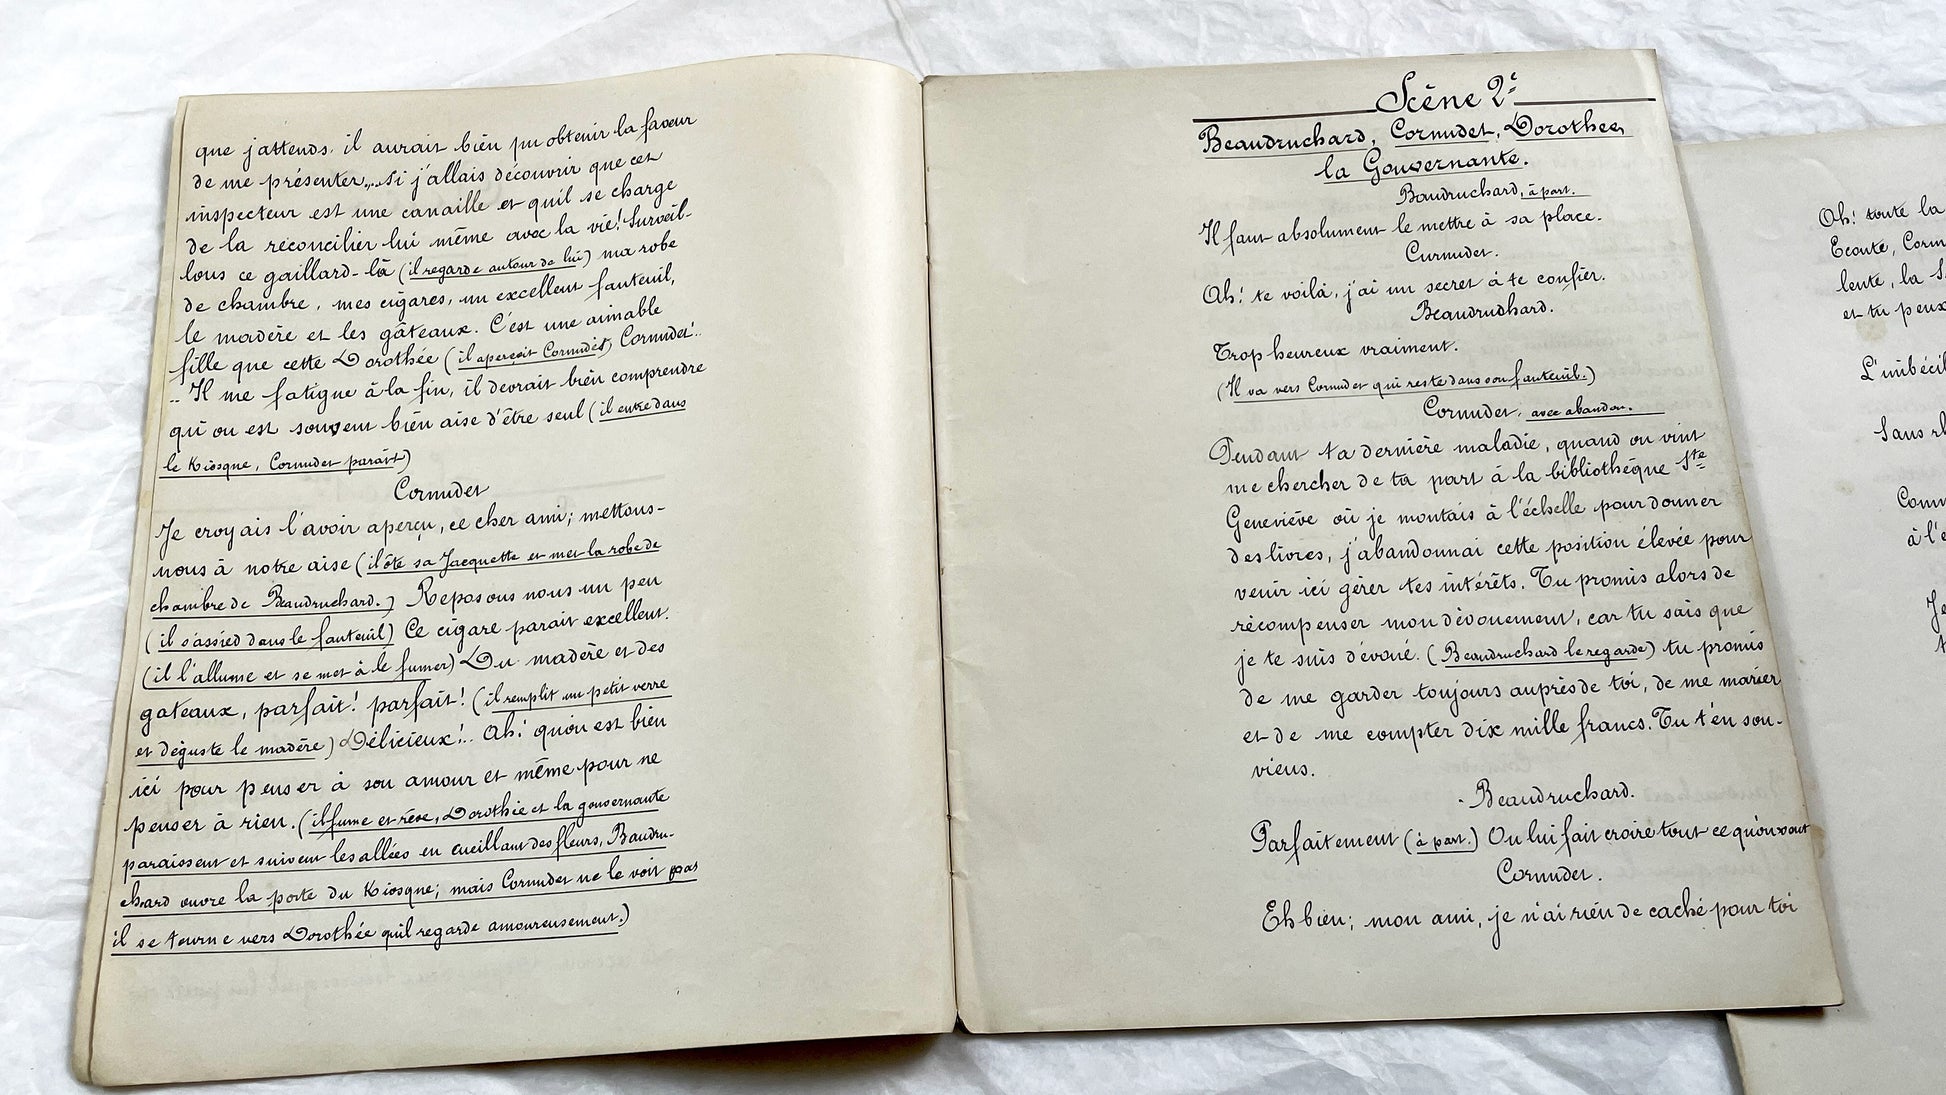 que j'attends. il aurait bien pu obtenir la faveur
de me présenter,...si j'allais découvrir que cet
inspecteur est une canaille et qu'il se charge
de la réconcilier lui même avec la vie! Surveil-
lons ce gaillard-là (il regarde autour de lui) ma robe
de chambre, mes cigares, un excellent fauteuil,
le madère et les gâteaux. C'est une aimable
fille que cette Dorothée (il aperçoit Cornudet) Cornudet!..
.. Il me fatigue à la fin, il devrait bien comprendre
qu'on est souvent bien aise d'être seul (il entre dans
le Kiosque, Cornudet parait)
Cornudet
Je croyais l'avoir aperçu, ce cher ami; mettons-
nous à notre aise (il ôte sa Jacquette et met la robe de
chambre de Beaudruchard.) Reposons nous un peu
(il s'assied dans le fauteuil) Ce cigare parait excellent.
(il l'allume et se met à le fumer) Du madère et des
gateaux, parfait! parfait! (il remplit un petit verre
et déguste le madère) Délicieux!.. Ah! qu'on est bien
ici pour penser à son amour et même pour ne
penser à rien. (il fume et rêve, Dorothée et la gouvernante
paraissent et suivent les allées en cueillant des fleurs, Baudru-
chard ouvre la porte du Kiosque; mais Cornudet ne le voit pas
il se tourne vers Dorothée qu'il regarde amoureusement.)
Scène 2e
Beaudruchard, Cornudet, Dorothee,
la Gouvernante.
Baudruchard, à part.
Il faut absolument le mettre à sa place.
Curnudet.
Ah! te voilà, j'ai un secret à te confier.
Beaudruchard.
Trop heureux vraiment.
(Il va vers Cornudet qui reste dans son fauteuil.)
Cornudet, avec abandon.
Pendant ta dernière maladie, quand on vint
me chercher de ta part à la bibliothéque Ste
Geneviève où je montais à l'échelle pour donner
des livres, j'abandonnai cette position élevée pour
venir ici gérer tes intérêts. Tu promis alors de
récompenser mon dévouement, car tu sais que
je te suis dévoué. (Beaudruchard le regarde) tu promis
de me garder toujours auprès de toi, de me marier
et de me compter dix mille francs. Tu t'en sou-
viens.
Beaudruchard.
Parfaitement (à part.) On lui fait croire tout ce qu'on veut
Cornudet.
Eh bien; mon ami, je n'ai rien de caché pour toi
Oh! toute la
Ecoute, Corn
lente, la S
et tu peux
L'imbécil
Sans
Comm
à l'e
Je